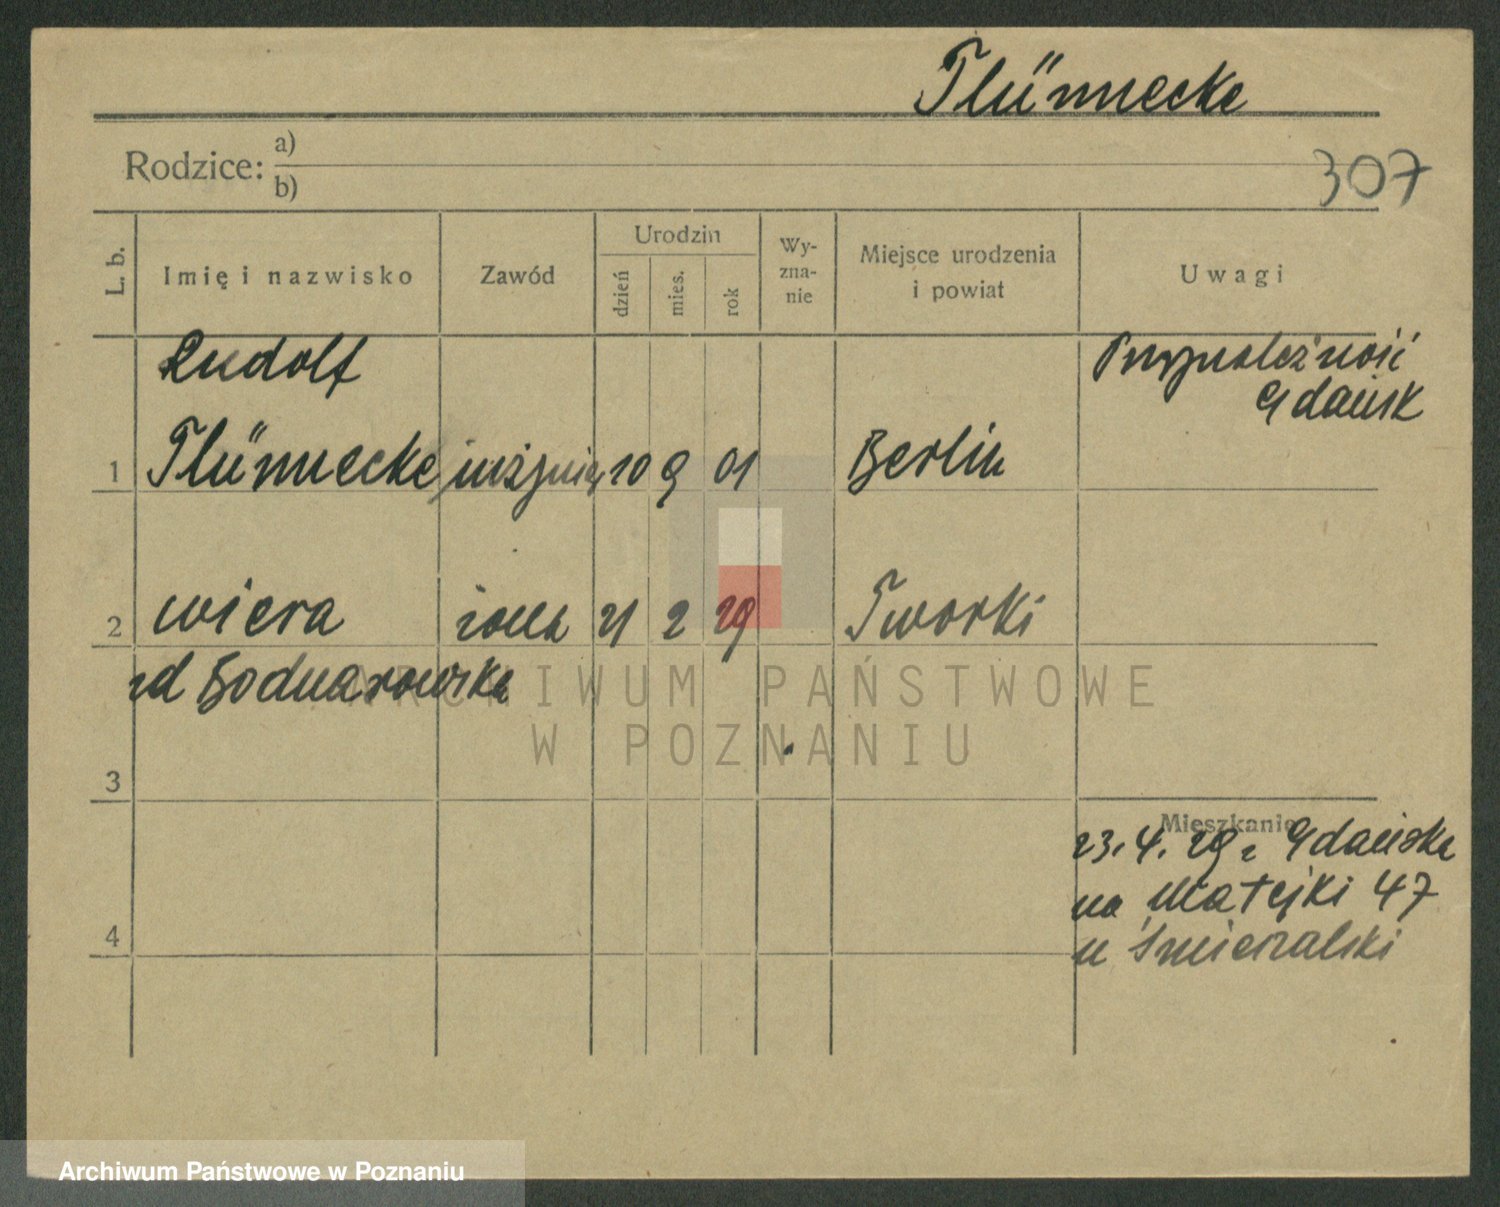 Flünnecke
Rodzice: a)
b)
307
L. b. Imię i nazwisko Zawód Urodzin dzień mies. rok Wy-zna-nie Miejsce urodzenia i powiat Uwagi
Rudolf Przynależność
Gdańsk
1 Flünnecke 10 9 01 Berlin
2 Wiera żona 21 2 29 Tworki
zd Bodnarowska
ARCHIWUM PAŃSTWOWE
W POZNANIU
3
Mieszkanie
23.4.29 z Gdańska
na Matejki 47
4
u
Archiwum Państwowe w Poznaniu